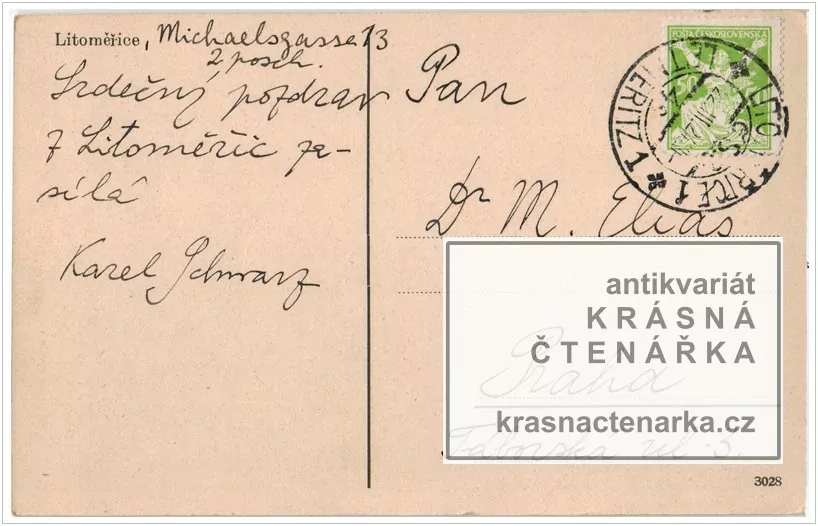 Litoměřice, Michaelsgasse 13
2 posch.
Srdečný pozdrav
z Litoměřic za-
sílá
Karel Schwarz
Pan
Dr M. Eliáš
Praha
Táborská ul. 3.
POŠTA ČESKOSLOVENSKÁ
50
LITOMĚŘICE 1
LEITMERITZ 1
antikvariát
KRÁSNÁ
ČTENÁŘKA
krasnactenarka.cz
3028